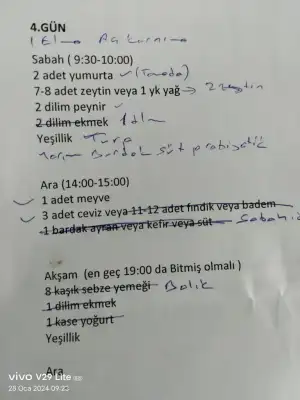 4.GÜN
1 Elma Aç karnına
Sabah ( 9:30-10:00)
2 adet yumurta ✓ (Tavada)
7-8 adet zeytin veya 1 yk yağ → 2 zeytin
2 dilim peynir ✓
2 dilim ekmek 1 dilim
Yeşillik Turp
yarım Bardak süt probiyotik
Ara (14:00-15:00)
1 adet meyve
3 adet ceviz veya 11-12 adet fındık veya badem
1 bardak ayran veya kefir veya süt Sabah
Akşam (en geç 19:00 da Bitmiş olmalı )
8 kaşık sebze yemeği Balık
1 dilim ekmek
1 kase yoğurt
Yeşillik
Ara
vivo V29 Lite 5G
28 Oca 2024 09:23